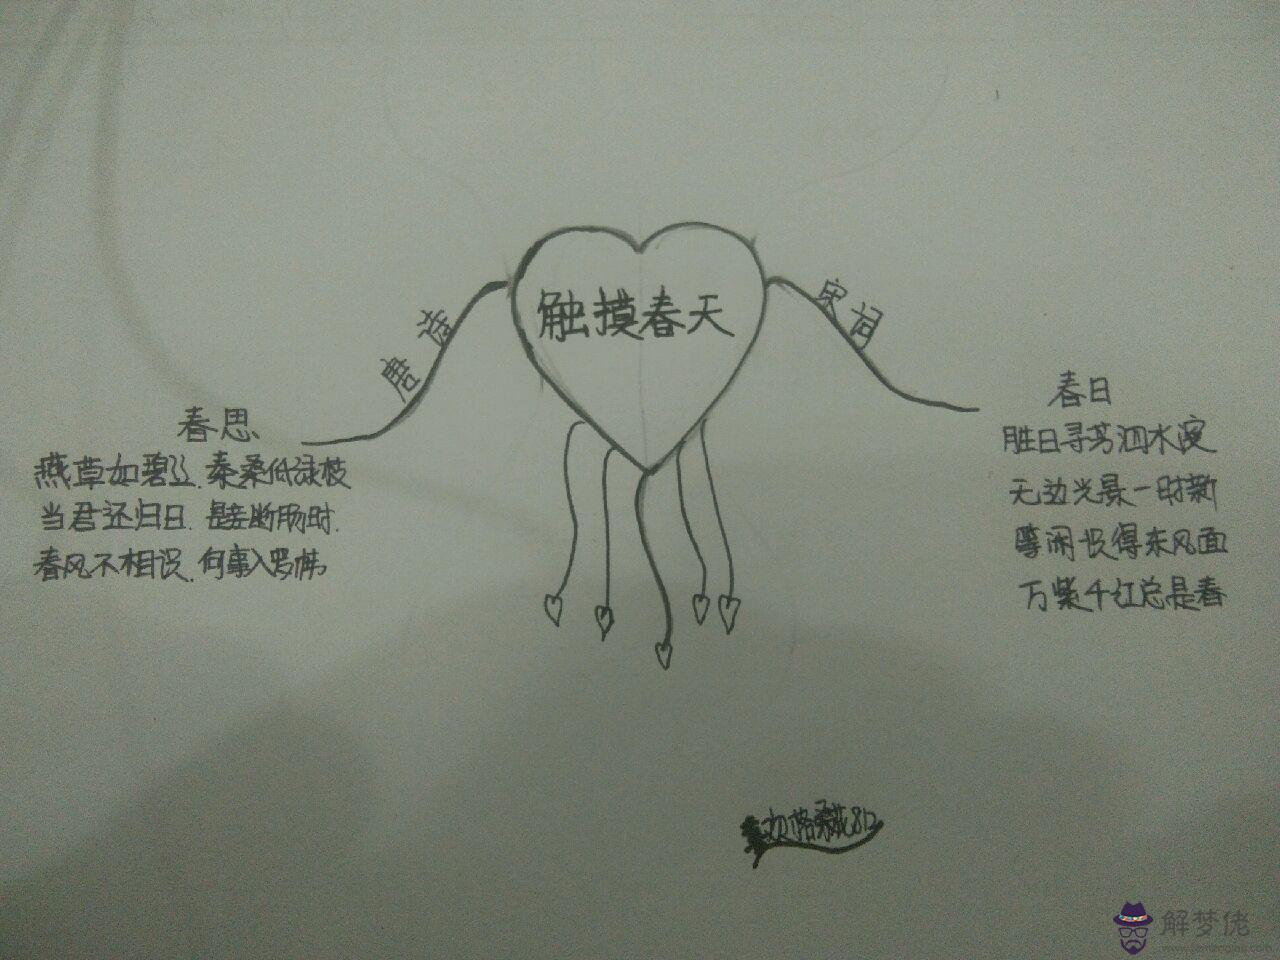 触摸春天
唐诗
春思
燕草如碧丝.秦桑低绿枝
当君还归日.是妾断肠时.
春风不相识.何事入罗帏
宋词
春日
胜日寻芳泗水滨
无边光景一时新
等闲识得东风面
万紫千红总是春
格桑花
解梦佬